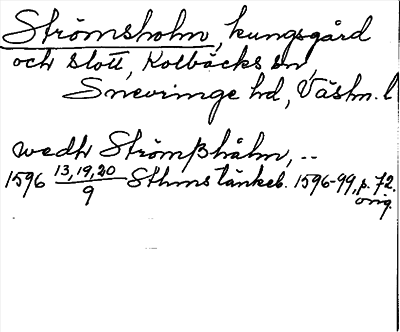 Strömsholm, kungsgård
och slott, Kolbäcks sn,
Snevringe hd, Västm. l
wedh Strömßhålm, --
1596 13,19,20/9 Sthms tänkeb. 1596-99, p. 72.
orig.